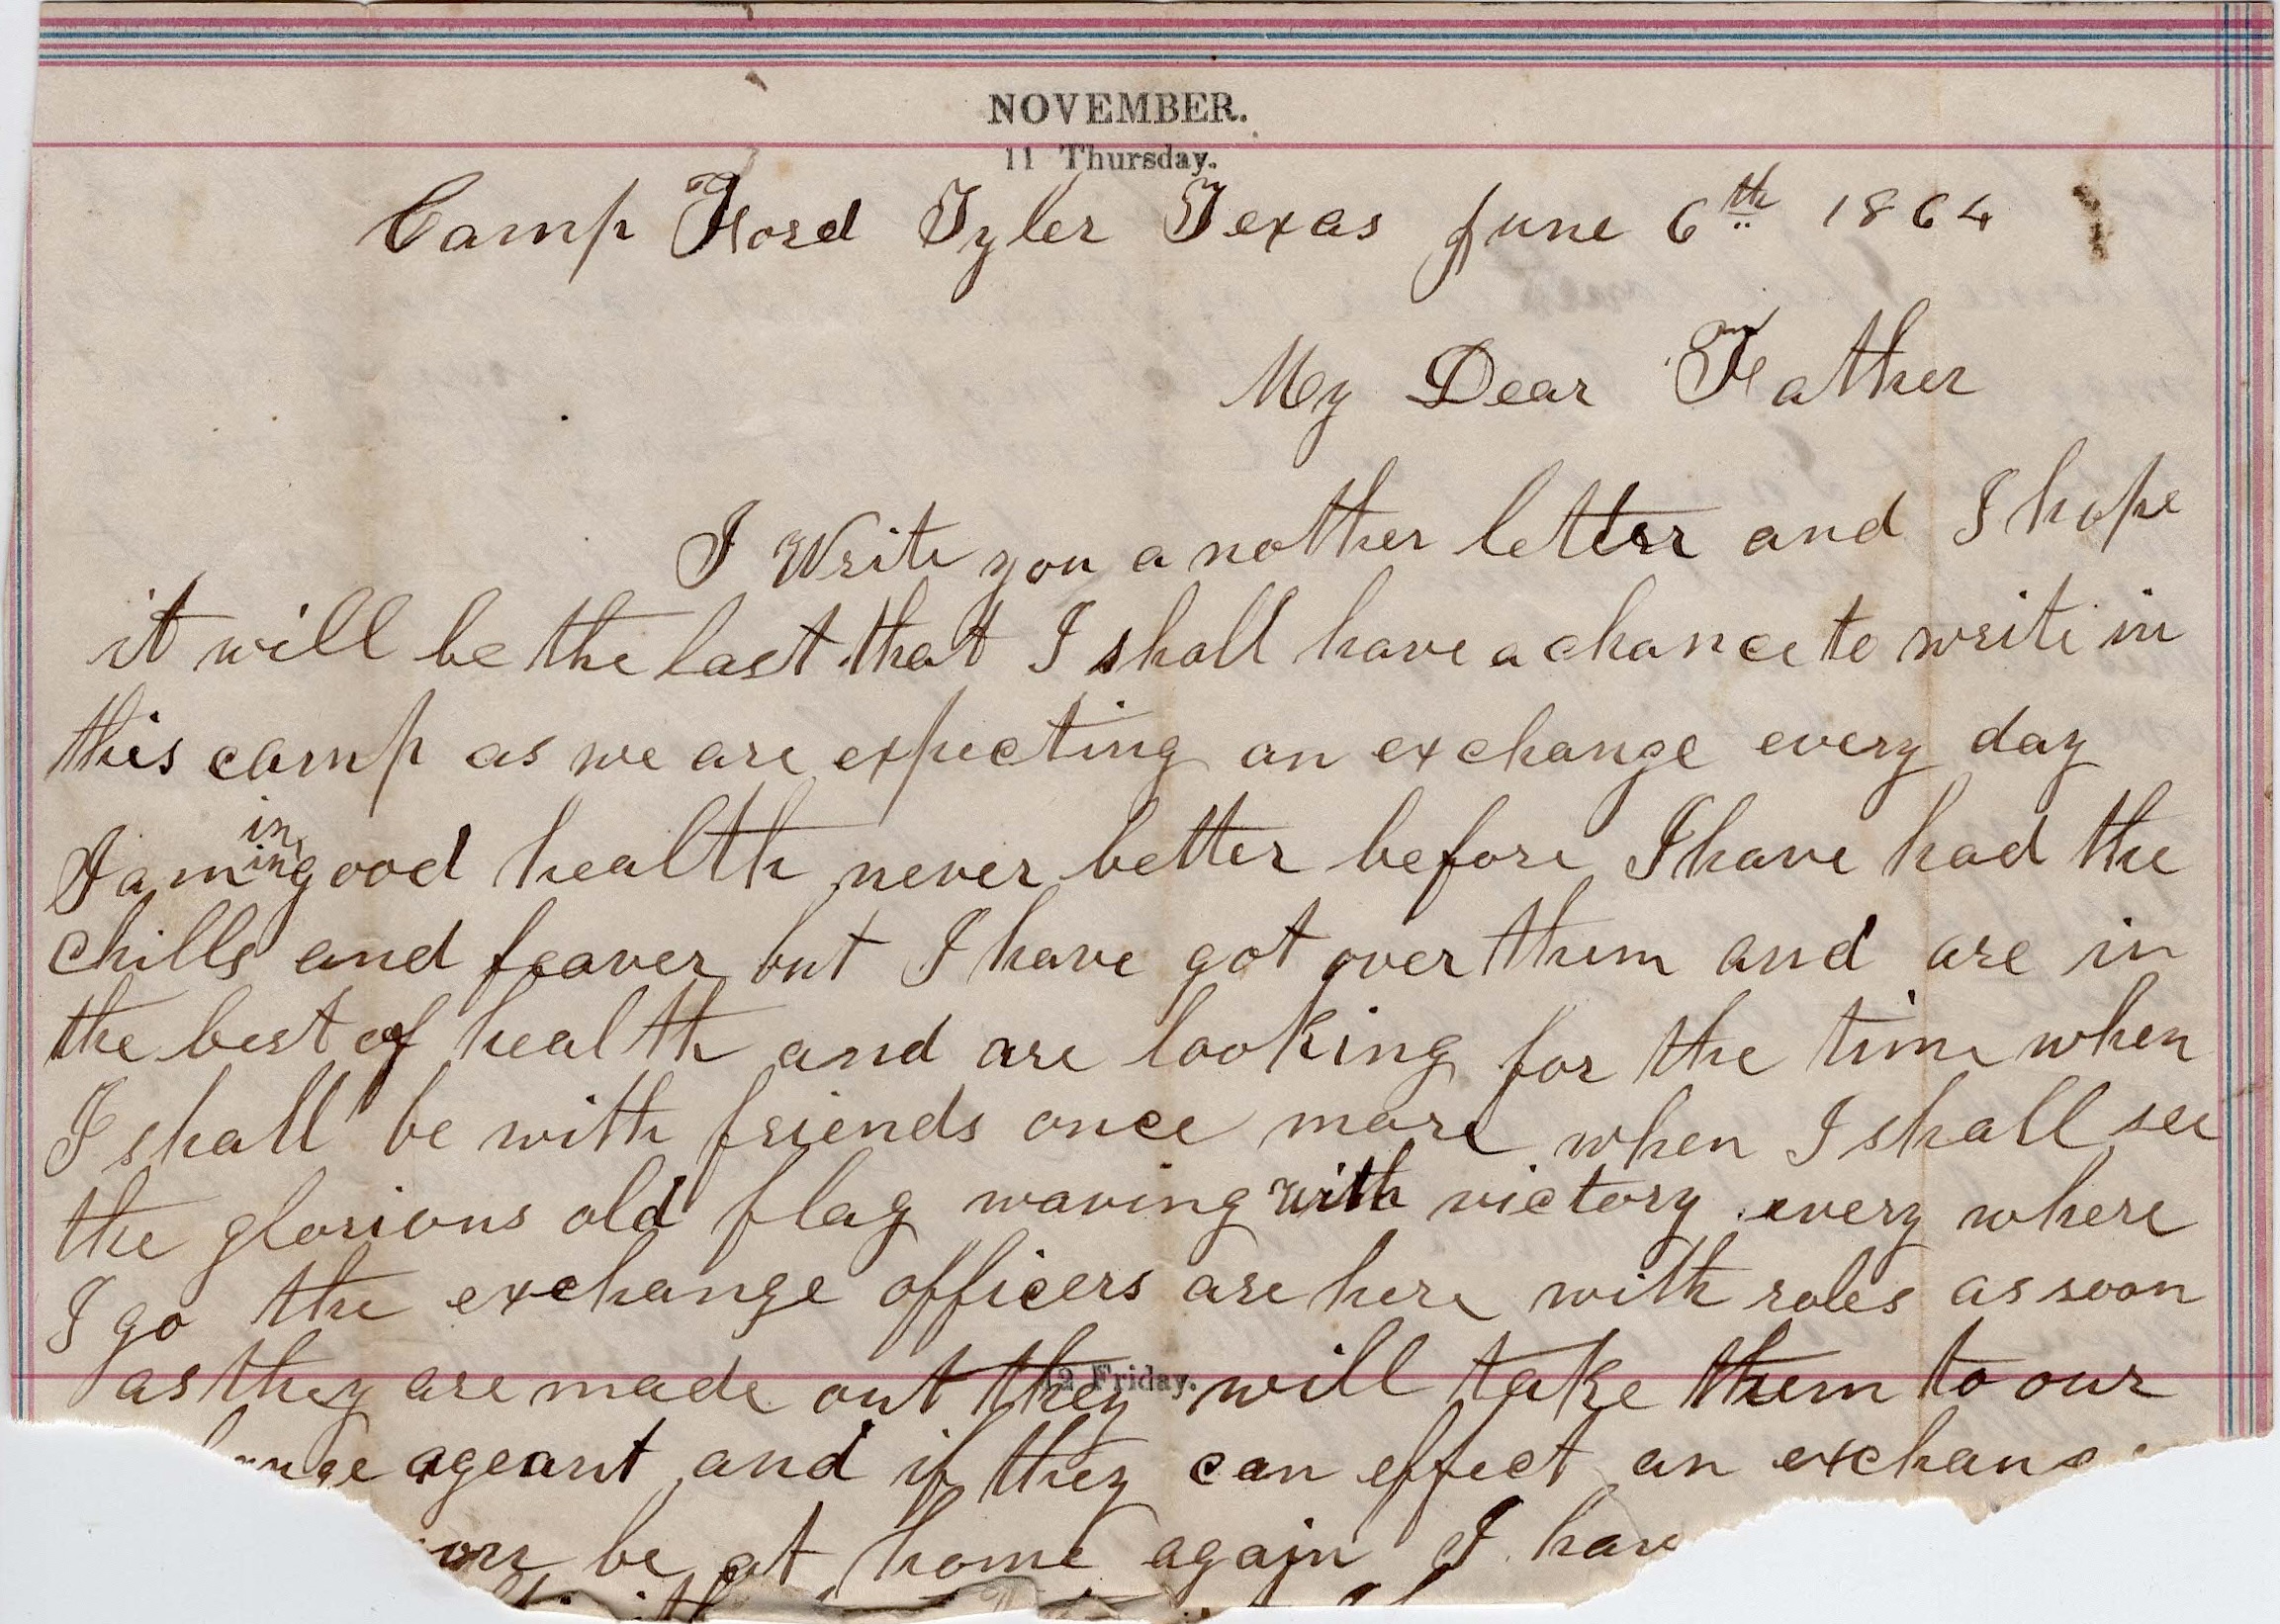 NOVEMBER.
11 Thursday.
Camp Ford Tyler Texas June 6th 1864
My Dear Father
I Write you a nother letter and I hope
it will be the last that I shall have a chance to write in
this camp as we are expecting an exchange every day
in
I am in good health never better before I have had the
chills and feaver but I have got over them and are in
the best of health and are looking for the time when
I shall be with friends once more when I shall see
the glorious old flag waving with victory every where
I go the exchange officers are here with roles as soon
as they are made out they will take them to our
12 Friday.
ange ageant and if they can effect an exchang
oon be at home again I hav